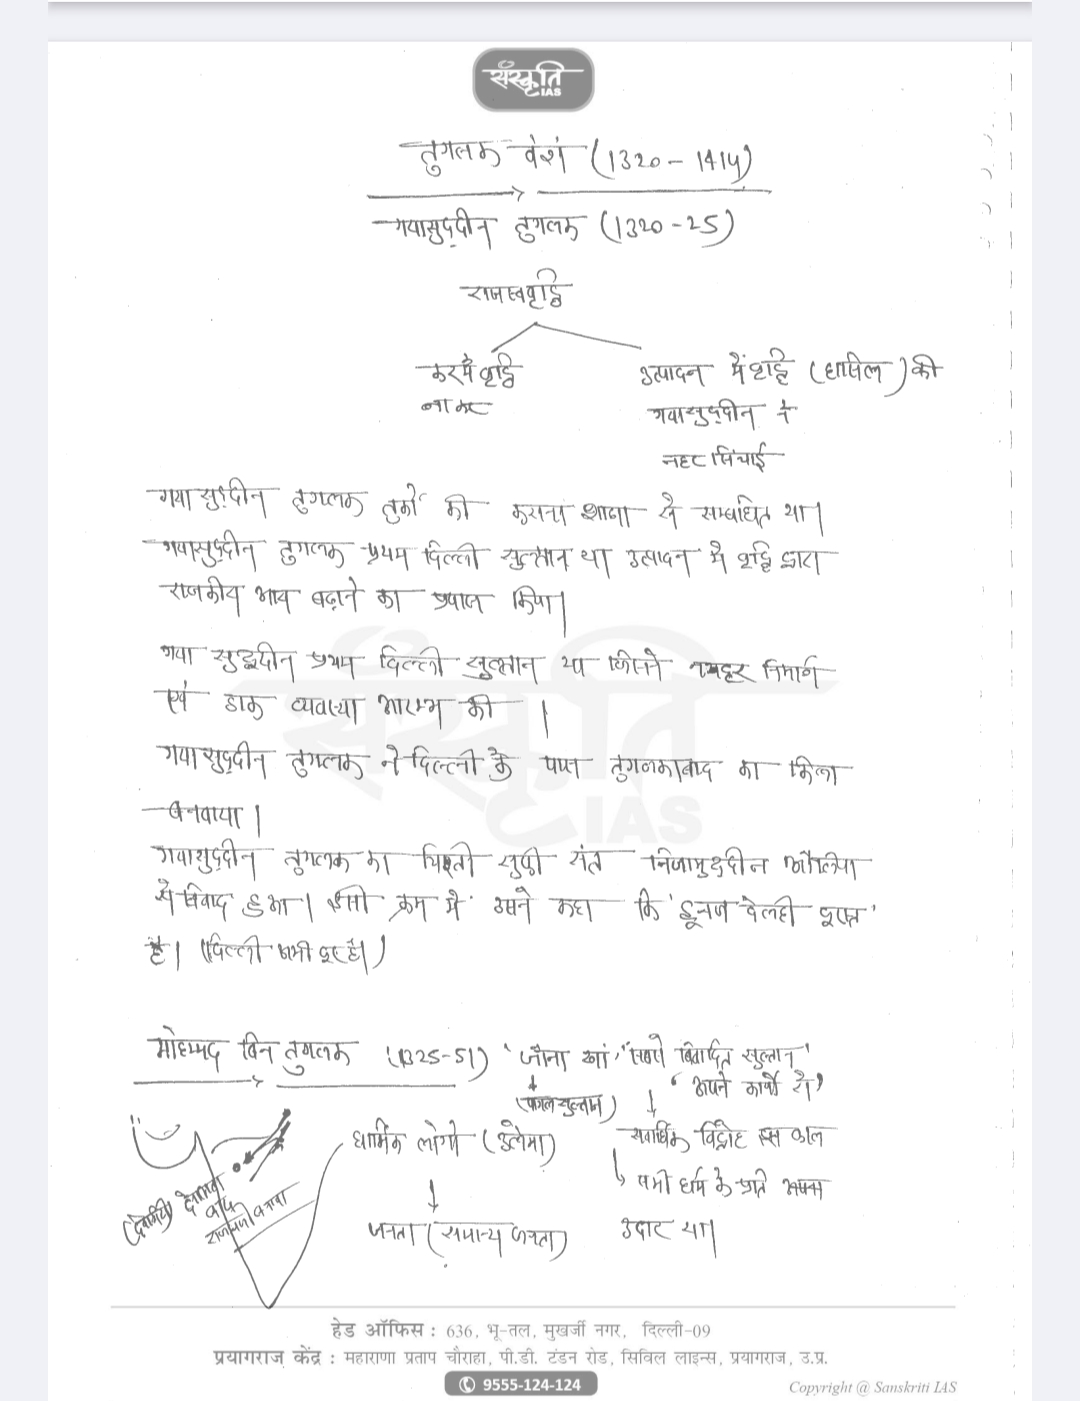 संस्कृति
IAS
तुगलक वंश (1320 - 1414)
गयासुद्दीन तुगलक (1320-25)
राजस्ववृद्धि
कर में वृद्धि
ना कर
उत्पादन में वृद्धि (हासिल) की
गयासुद्दीन ने
नहर सिंचाई
गयासुद्दीन तुगलक तुर्कों की करौना शाखा से सम्बंधित था।
गयासुद्दीन तुगलक प्रथम दिल्ली सुल्तान था उत्पादन में वृद्धि द्वारा
राजकीय आय बढ़ाने का प्रयास किया।
गयासुद्दीन प्रथम दिल्ली सुल्तान था जिसने नहर निर्माण
एवं डाक व्यवस्था आरम्भ की।
गयासुद्दीन तुगलक ने दिल्ली के पास तुगलकाबाद का किला
बनवाया।
गयासुद्दीन तुगलक का चिश्ती सूफी संत निजामुद्दीन औलिया
से विवाद हुआ। इसी क्रम में उसने कहा कि 'हुनूज देलही दूरस्त'
है। (दिल्ली अभी दूर है।)
मोहम्मद बिन तुगलक (1325-51) 'जौना खां' 'सबसे विवादित सुल्तान'
(पागल सुल्तान) 'अपने कार्यों से'
धार्मिक लोगों (उलेमा) सर्वाधिक विद्रोह इस काल
सभी धर्म के प्रति
जनता (समान्य जनता) उदार था।
(देवगिरी) देवगिरी
राजधानी बनाया
हेड ऑफिस : 636, भू-तल, मुखर्जी नगर, दिल्ली-09
प्रयागराज केंद्र : महाराणा प्रताप चौराहा, पी.डी. टंडन रोड, सिविल लाइन्स, प्रयागराज, उ.प्र.
9555-124-124
Copyright @ Sanskriti IAS